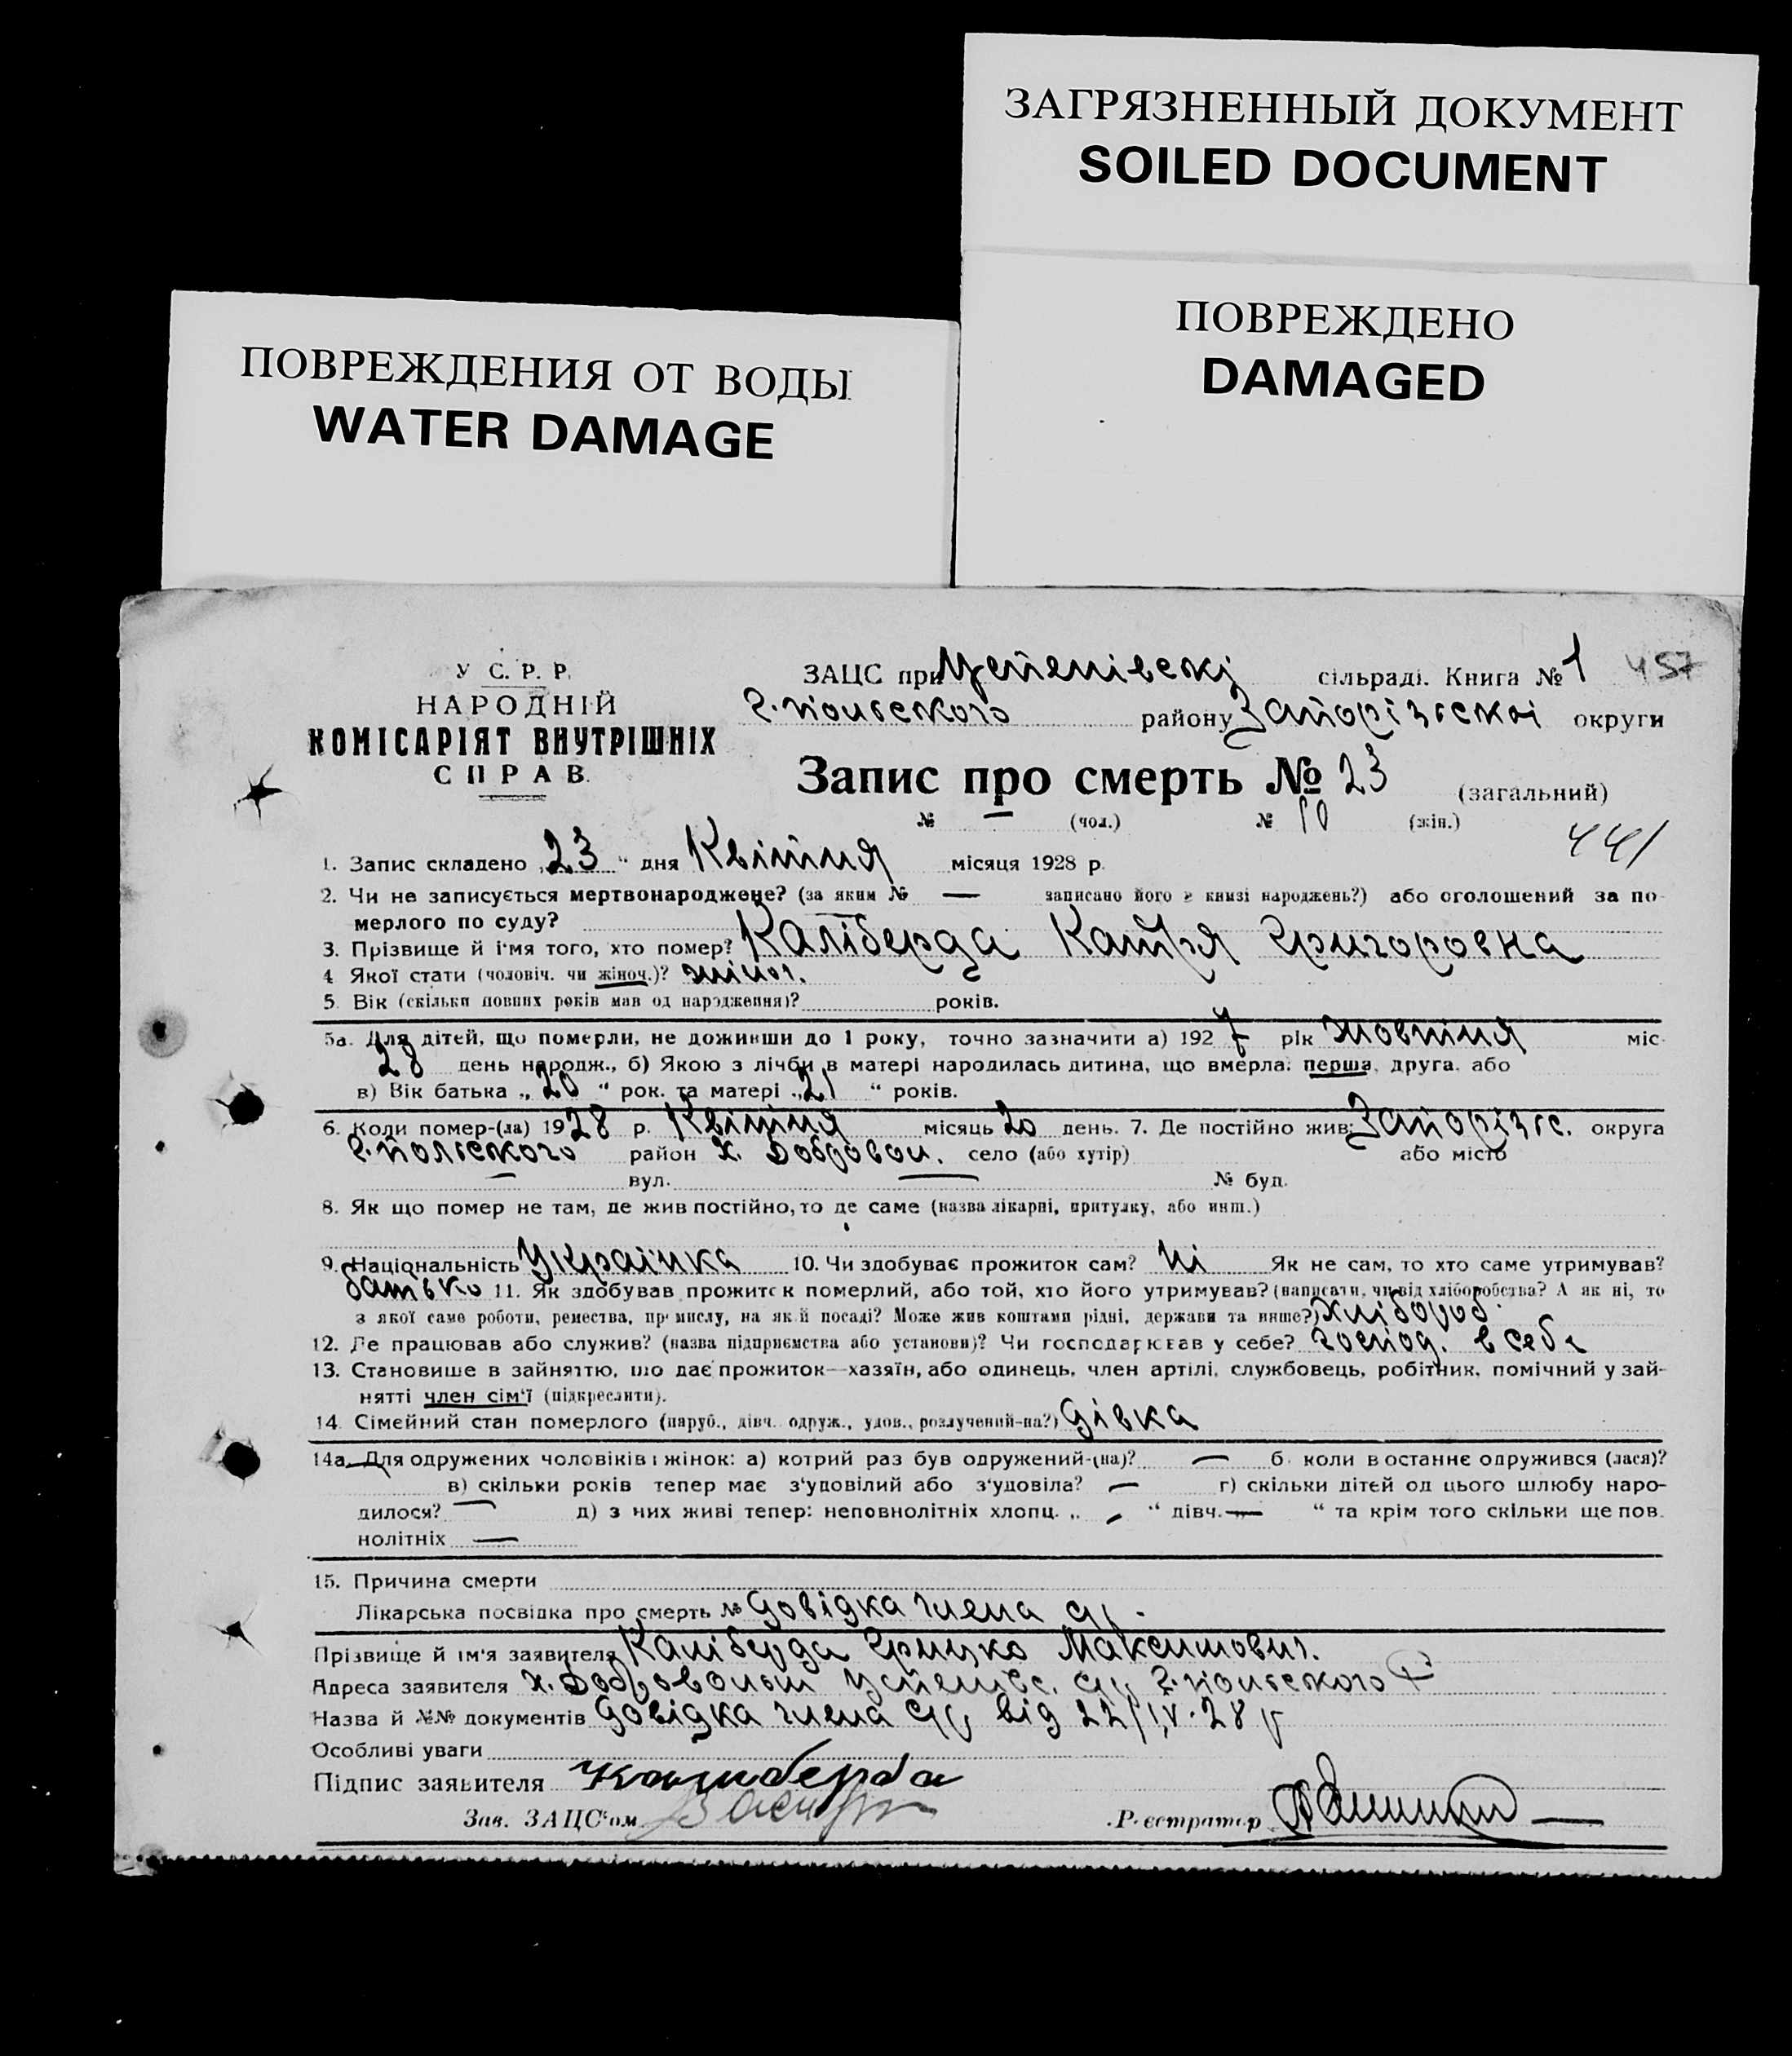 ЗАГРЯЗНЕННЫЙ ДОКУМЕНТ
SOILED DOCUMENT
ПОВРЕЖДЕНО
DAMAGED
ПОВРЕЖДЕНИЯ ОТ ВОДЫ
WATER DAMAGE
У С. Р. Р.
НАРОДНІЙ
КОМІСАРІЯТ ВНУТРІШНІХ
СПРАВ.
ЗАЦС при Успенівскі сільраді. Книга № 1 457
Г.Польского району Запорізькоі округи
Запис про смерть № 23 (загальний)
№ — (чол.) № 10 (жін.)
441
1. Запис складено „23“ дня Квітня місяця 1928 р.
2. Чи не записується мертвонароджене? (за яким № — записано його в книзі народжень?) або оголошений за по-
мерлого по суду?
3. Прізвище й ім'я того, хто помер? Каліберда Катря Григоровна
4 Якої стати (чоловіч. чи жіноч.)? жіноч.
5. Вік (скільки повних років мав од народження)? років.
5а. Для дітей, що померли, не доживши до 1 року, точно зазначити а) 1927 рік жовтня міс-
28 день народж., б) Якою з лічби в матері народилась дитина, що вмерла: перша, друга, або
в) Вік батька „20“ рок. та матері „21“ років.
6. Коли помер-(ла) 1928 р. Квітня місяць 20 день. 7. Де постійно жив: Запорізьс. округа
Г.Польского район х. Добровол. село (або хутір) або місто
— вул. — № буд.
8. Як що помер не там, де жив постійно, то де саме (назва лікарні, притулку, або инш.)
9. Національність Украінка 10. Чи здобуває прожиток сам? ні Як не сам, то хто саме утримував?
батько 11. Як здобував прожиток померлий, або той, хто його утримував? (написати, чи від хліборобства? А як ні, то
з якої саме роботи, ремества, промислу, на якій посаді? Може жив коштами рідні, держави та инше?) хлібороб.
12. Де працював або служив? (назва підприємства або установи)? Чи господарював у себе? господ. в себе
13. Становище в зайняттю, що дає прожиток—хазяїн, або одинець, член артілі, службовець, робітник, помічний у зай-
нятті член сім'ї (підкреслити).
14. Сімейний стан померлого (паруб., дівч. одруж., удов., розлучений-на?) дівка
14а. Для одружених чоловіків і жінок: а) котрий раз був одружений-(на)? — б. коли в останнє одружився (лася)?
в) скільки років тепер має з'удовілий або з'удовіла? — г) скільки дітей од цього шлюбу наро-
дилося? — д) з них живі тепер: неповнолітніх хлопц. „ — “ дівч. „—“ та крім того скільки ще пов.
нолітніх —
15. Причина смерти
Лікарська посвідка про смерть № довідка члена с/р.
Прізвище й ім'я заявителя Каліберда Грицко Максимович.
Адреса заявителя х. Добровольн Успенівс. с/р, Г.Польского
Назва й №№ документів довідка члена с/р, від 22/IV-28 р
Особливі уваги
Підпис заявителя Калиберда
Зав. ЗАЦС'ом
Реєстратор